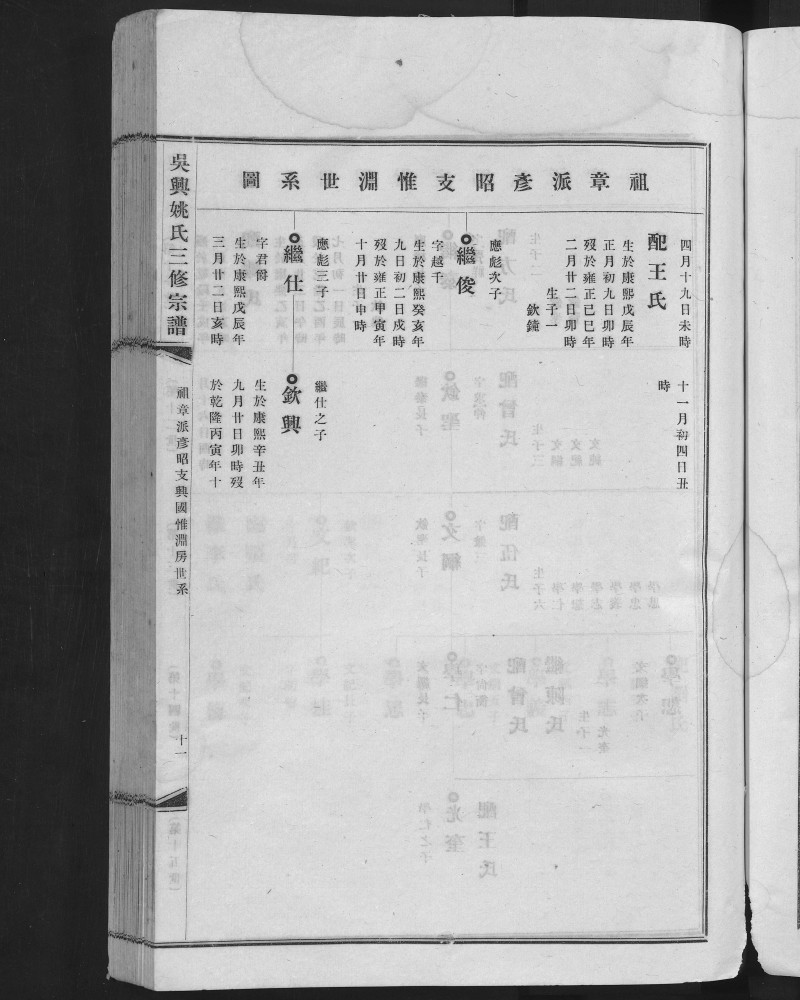 祖章派彥昭支惟淵世系圖
四月十九日未時
配王氏
生於康熙戊辰年
正月初九日卯時
歿於雍正己巳年
二月廿二日卯時
生子一
欽鐘
十一月初四日丑
時
應彪次子
繼俊
字越千
生於康熙癸亥年
九日初二日戌時
歿於雍正甲寅年
十月廿日申時
應彪三子
繼仕
字君爵
生於康熙戊辰年
三月廿二日亥時
繼仕之子
欽興
生於康熙辛丑年
九月廿日卯時歿
於乾隆丙寅年十
吳興姚氏三修宗譜
祖章派彥昭支興國惟淵房世系
十一